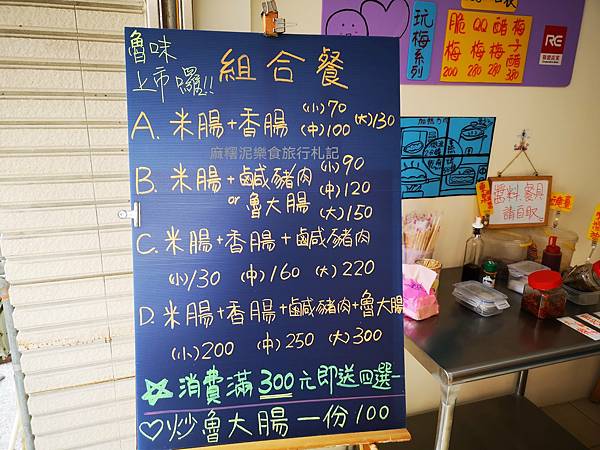 魯味
上市囉!!
組合餐
A. 米腸+香腸 (小)70 (中)100 (大)130
麻糬泥樂食旅行札記
B. 米腸+鹹豬肉 or 魯大腸 (小)90 (中)120 (大)150
C. 米腸+香腸+鹹豬肉
(小)130 (中)160 (大)220
D. 米腸+香腸+鹹豬肉+魯大腸
(小)200 (中)250 (大)300
☆消費滿300元即送四選一
♡炒魯大腸一份100
玩梅系列
脆梅 200
QQ梅 280
醋梅 280
梅子醋 380
RE
醬料.餐具
請自取